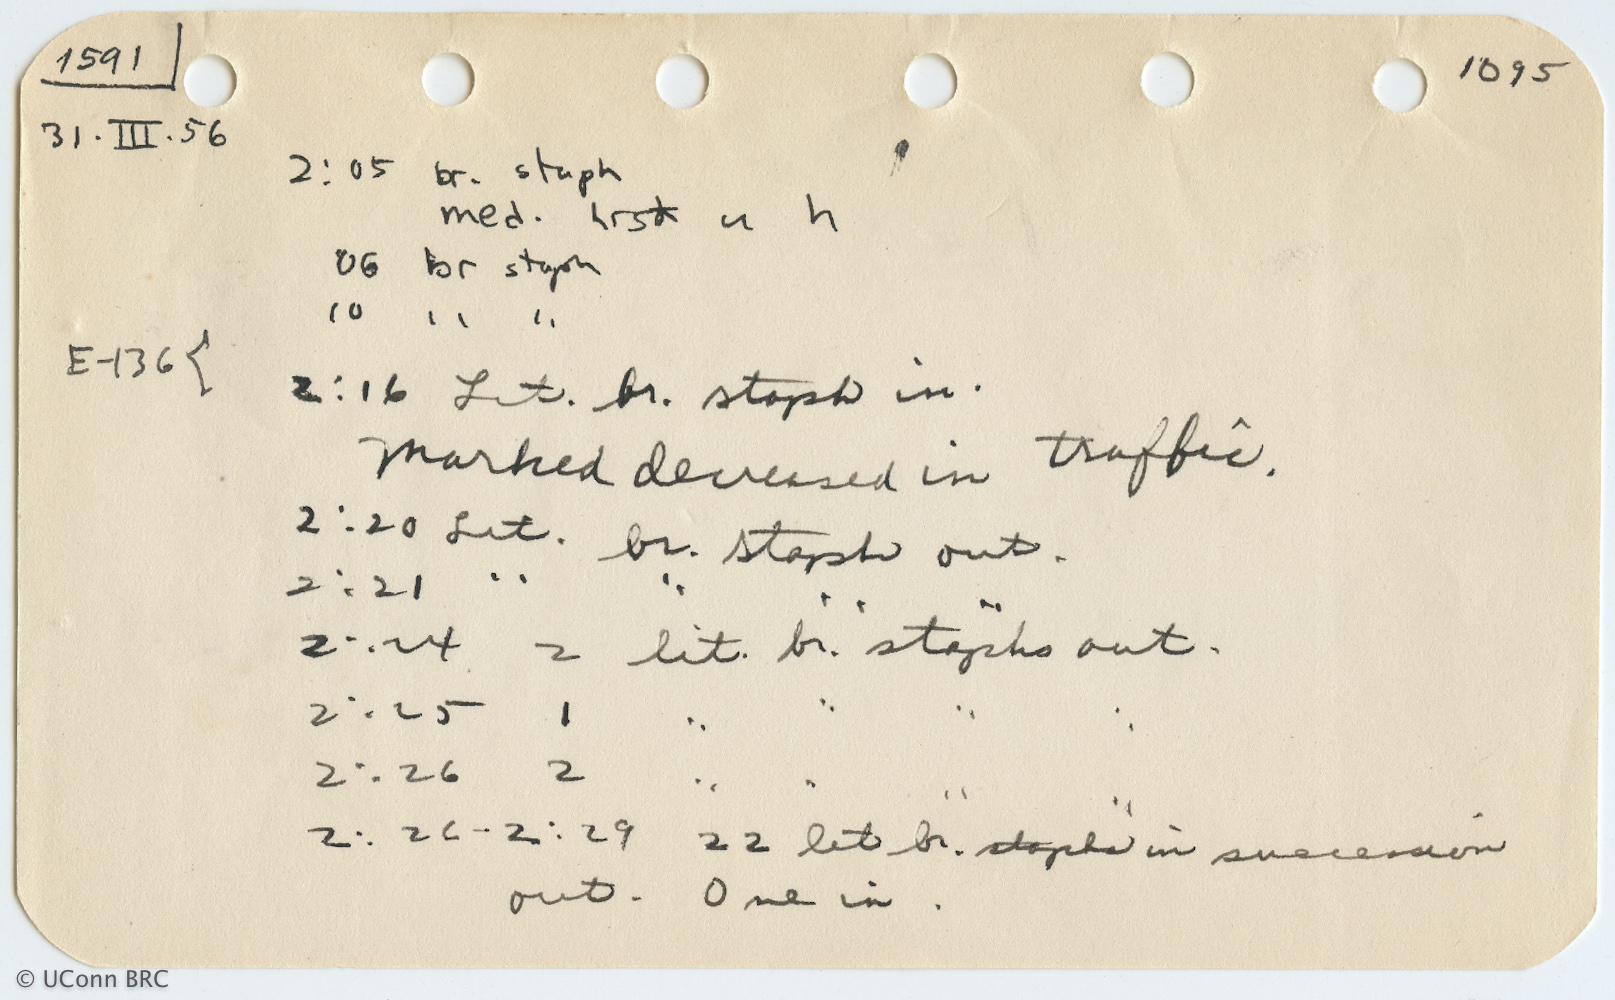 1591
1095
31.III.56
2:05 br. staph
med. hrst u h
06 br staph
10 " "
E-136 {
2:16 Lit. br. staph in.
Marked decreased in traffic.
2:20 Lit. br. staph out.
2:21 " " " "
2:24 2 lit. br. staphs out.
2:25 1 " " " "
2:26 2 " " " "
2:26-2:29 22 lit br. staphs in succession
out. One in.
© UConn BRC